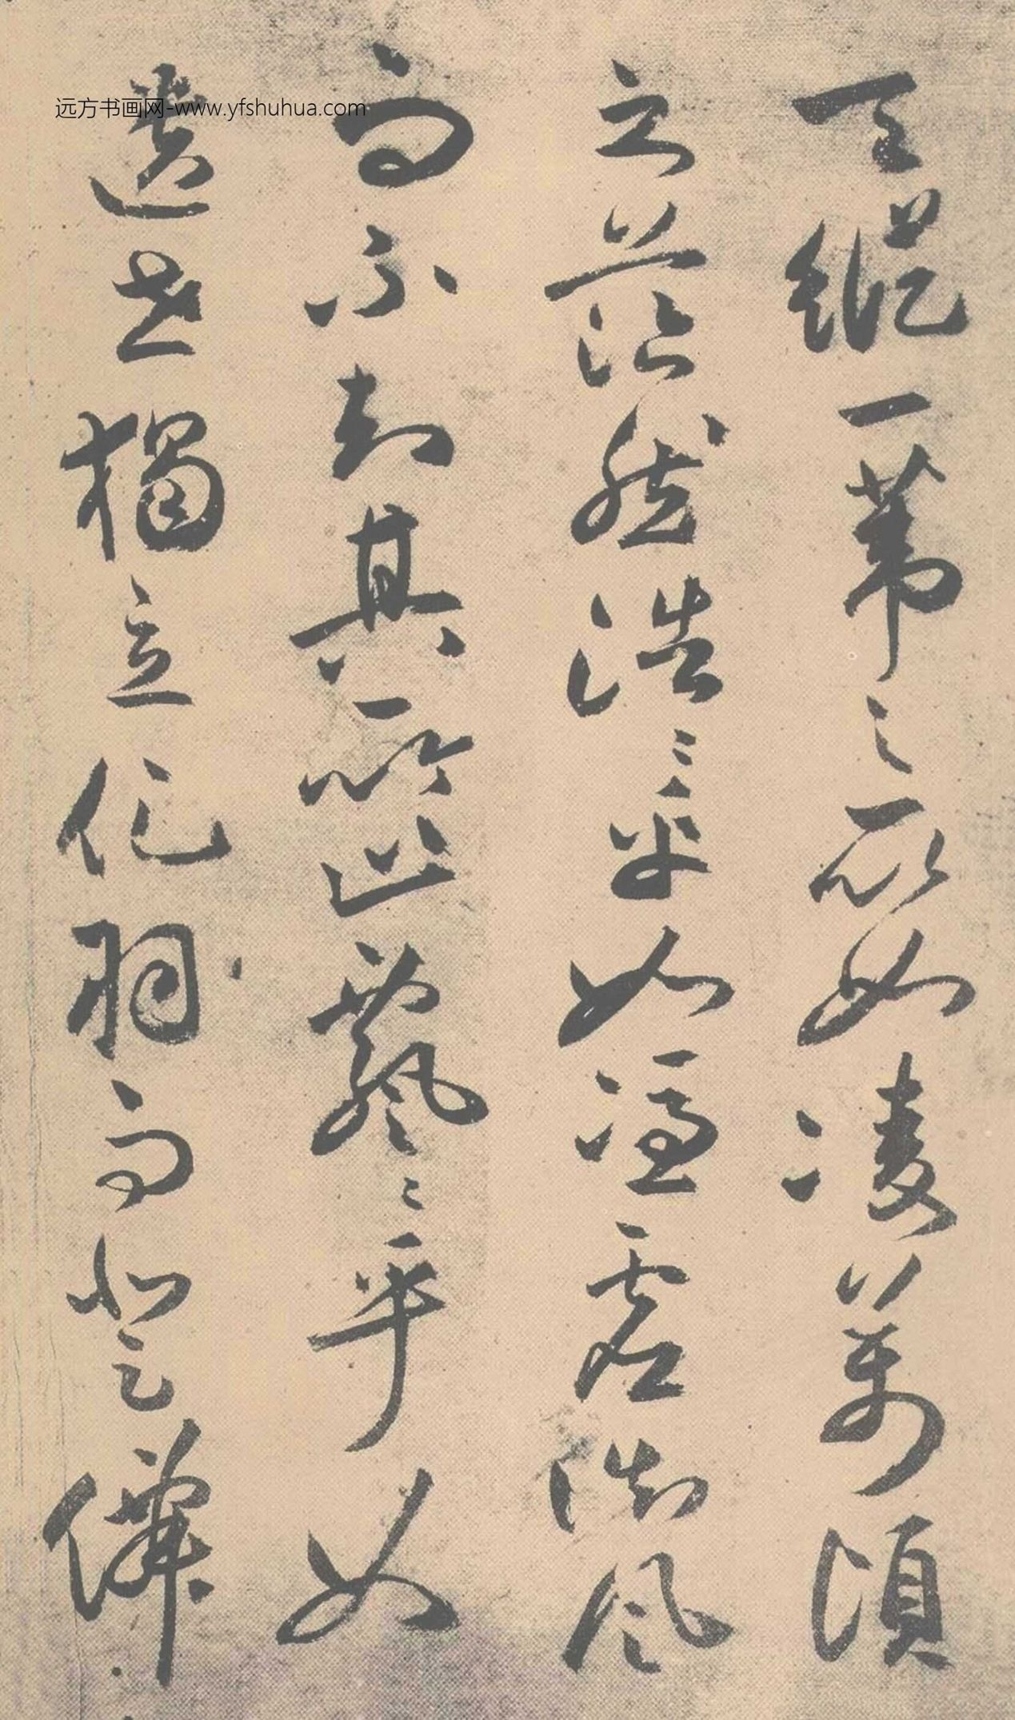 天縱一葦之所如凌萬頃
之茫然浩〻乎如憑虛御風
而不知其所止飄〻乎如
遺世獨立化羽而登僊
远方书画网-www.yfshuhua.com